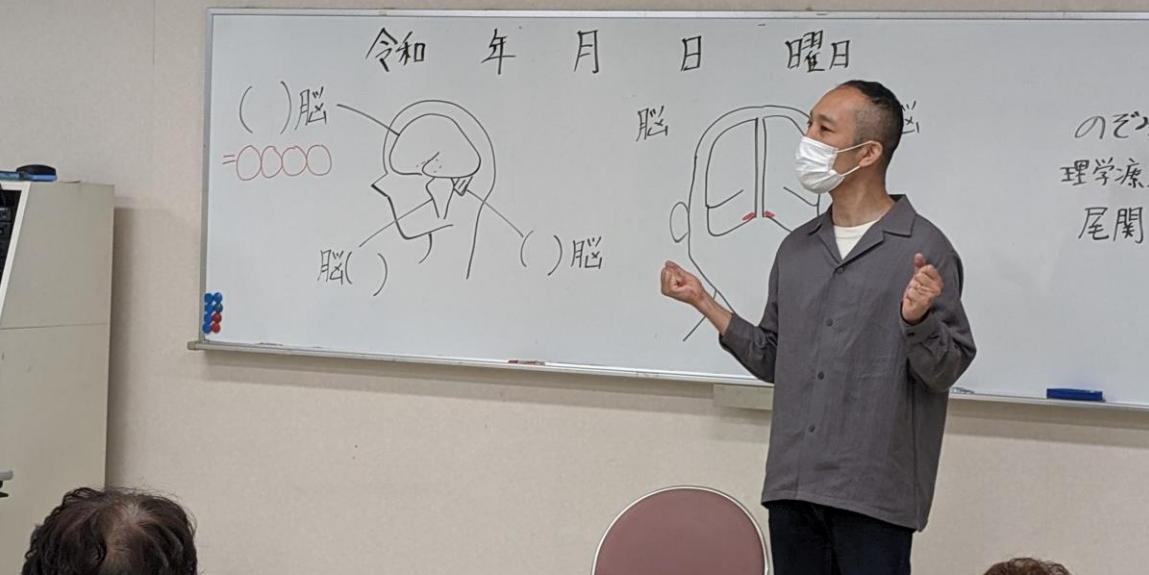 令和 年 月 日 曜日
( )脳
=○○○○
脳( )
( )脳
脳
のぞみ
理学療
尾関